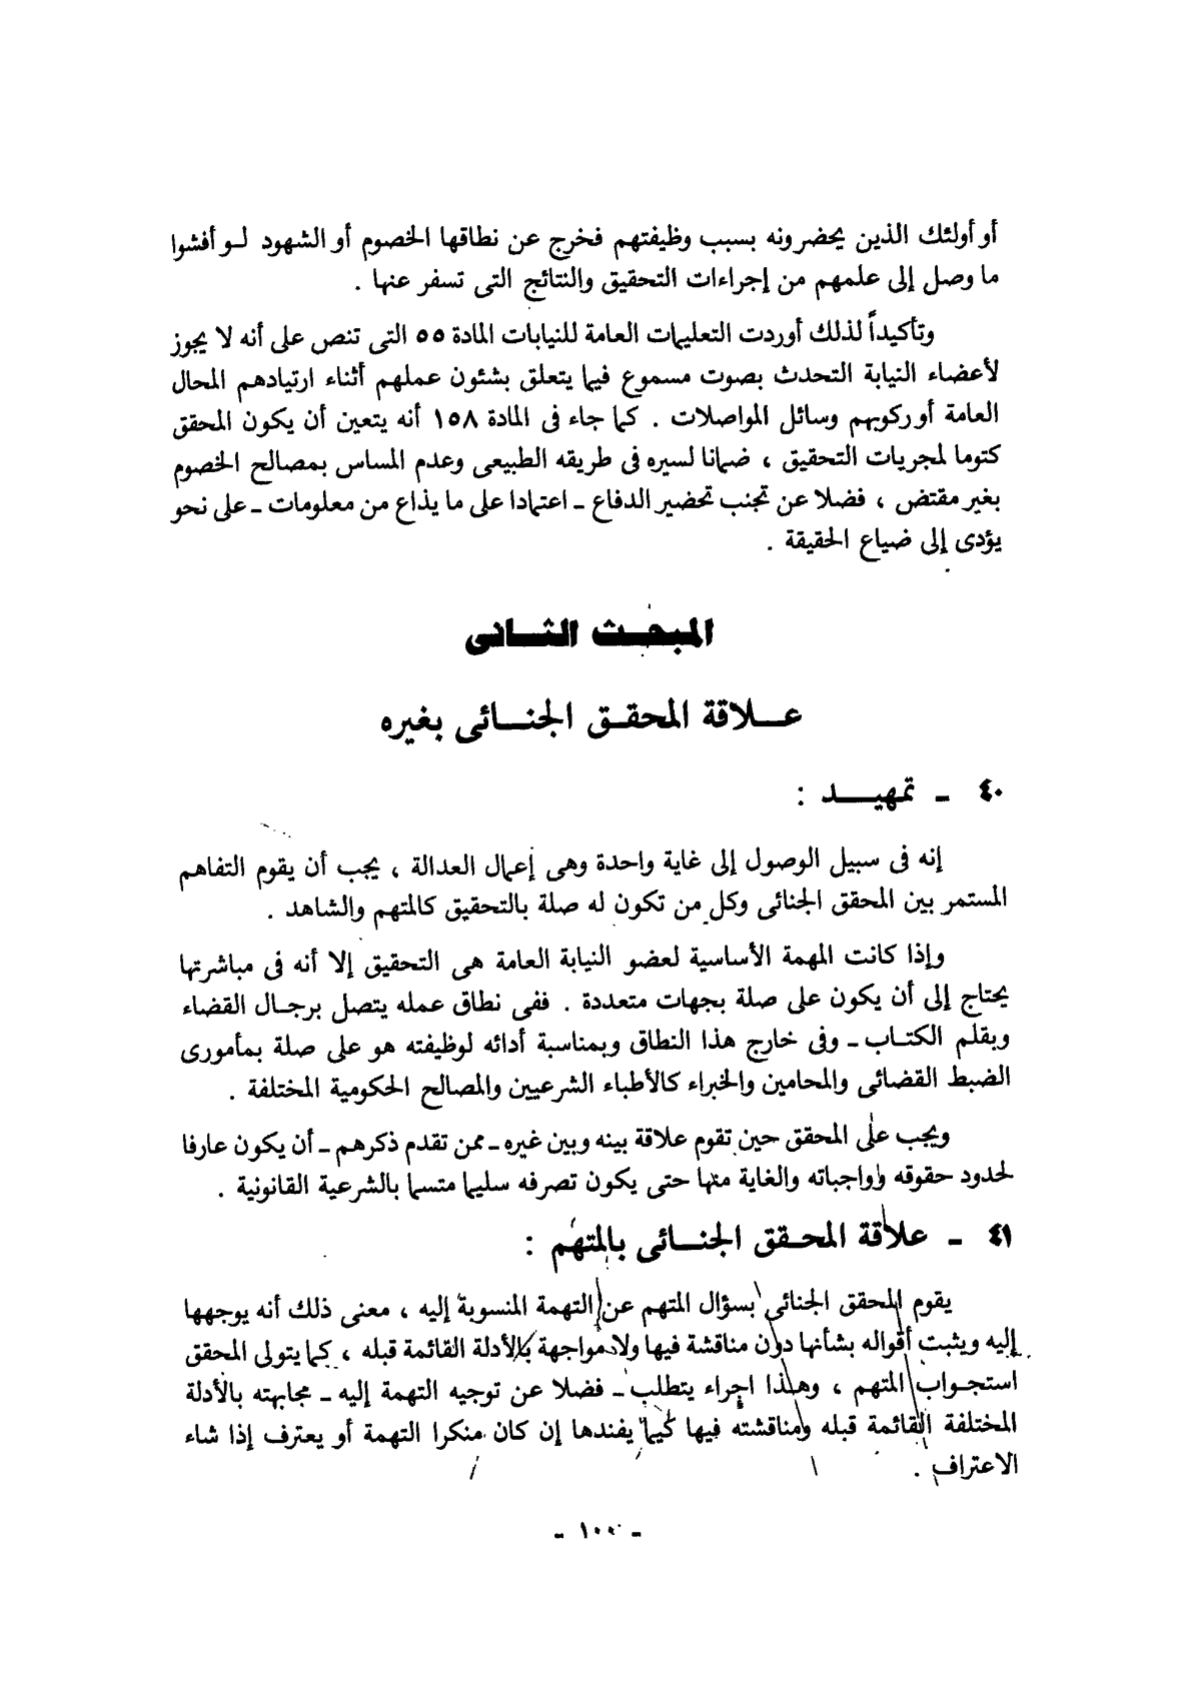 أو أولئك الذين يحضرونه بسبب وظيفتهم فخرج عن نطاقها الخصوم أو الشهود لـو أفشوا
ما وصل إلى علمهم من إجراءات التحقيق والنتائج التى تسفر عنها .
وتأكيداً لذلك أوردت التعليمات العامة للنيابات المادة ٥٥ التى تنص على أنه لا يجوز
لأعضاء النيابة التحدث بصوت مسموع فيما يتعلق بشئون عملهم أثناء ارتيادهم المحال
العامة أو ركوبهم وسائل المواصلات . كما جاء فى المادة ١٥٨ أنه يتعين أن يكون المحقق
كتوما لمجريات التحقيق ، ضمانا لسيره فى طريقه الطبيعى وعدم المساس بمصالح الخصوم
بغير مقتض ، فضلا عن تجنب تحضير الدفاع ـ اعتمادا على ما يذاع من معلومات ـ على نحو
يؤدى إلى ضياع الحقيقة .
المبحـث الثـانى
عـلاقة المحقـق الجنـائى بغيره
٤٠ ـ تمهيـد :
إنه فى سبيل الوصول إلى غاية واحدة وهى إعمال العدالة ، يجب أن يقوم التفاهم
المستمر بين المحقق الجنائى وكل من تكون له صلة بالتحقيق كالمتهم والشاهد .
وإذا كانت المهمة الأساسية لعضو النيابة العامة هى التحقيق إلا أنه فى مباشرتها
يحتاج إلى أن يكون على صلة بجهات متعددة . ففى نطاق عمله يتصل برجـال القضاء
وبقلم الكتـاب ـ وفى خارج هذا النطاق وبمناسبة أدائه لوظيفته هو على صلة بمأمورى
الضبط القضائى والمحامين والخبراء كالأطباء الشرعيين والمصالح الحكومية المختلفة .
ويجب على المحقق حين تقوم علاقة بينه وبين غيره ـ ممن تقدم ذكرهم ـ أن يكون عارفا
لحدود حقوقه وواجباته والغاية منها حتى يكون تصرفه سليما متسما بالشرعية القانونية .
٤١ ـ علاقة المحـقق الجنـائى بالمتهم :
يقوم المحقق الجنائى بسؤال المتهم عن التهمة المنسوبة إليه ، معنى ذلك أنه يوجهها
إليه ويثبت أقواله بشأنها دون مناقشة فيها ولا مواجهة بالأدلة القائمة قبله ، كما يتولى المحقق
استجـواب المتهم ، وهـذا اجراء يتطلب ـ فضلا عن توجيه التهمة إليه ـ مجابهته بالأدلة
المختلفة القائمة قبله ومناقشته فيها كيما يفندها إن كان منكرا التهمة أو يعترف إذا شاء
الاعتراف .
ـ ١٠٠ ـ